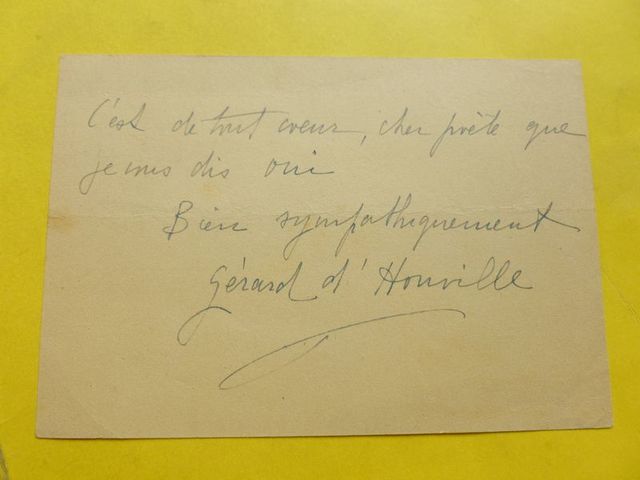 C'est de tout coeur, cher poète que
je vous dis oui
Bien sympathiquement
Gérard d'Houville